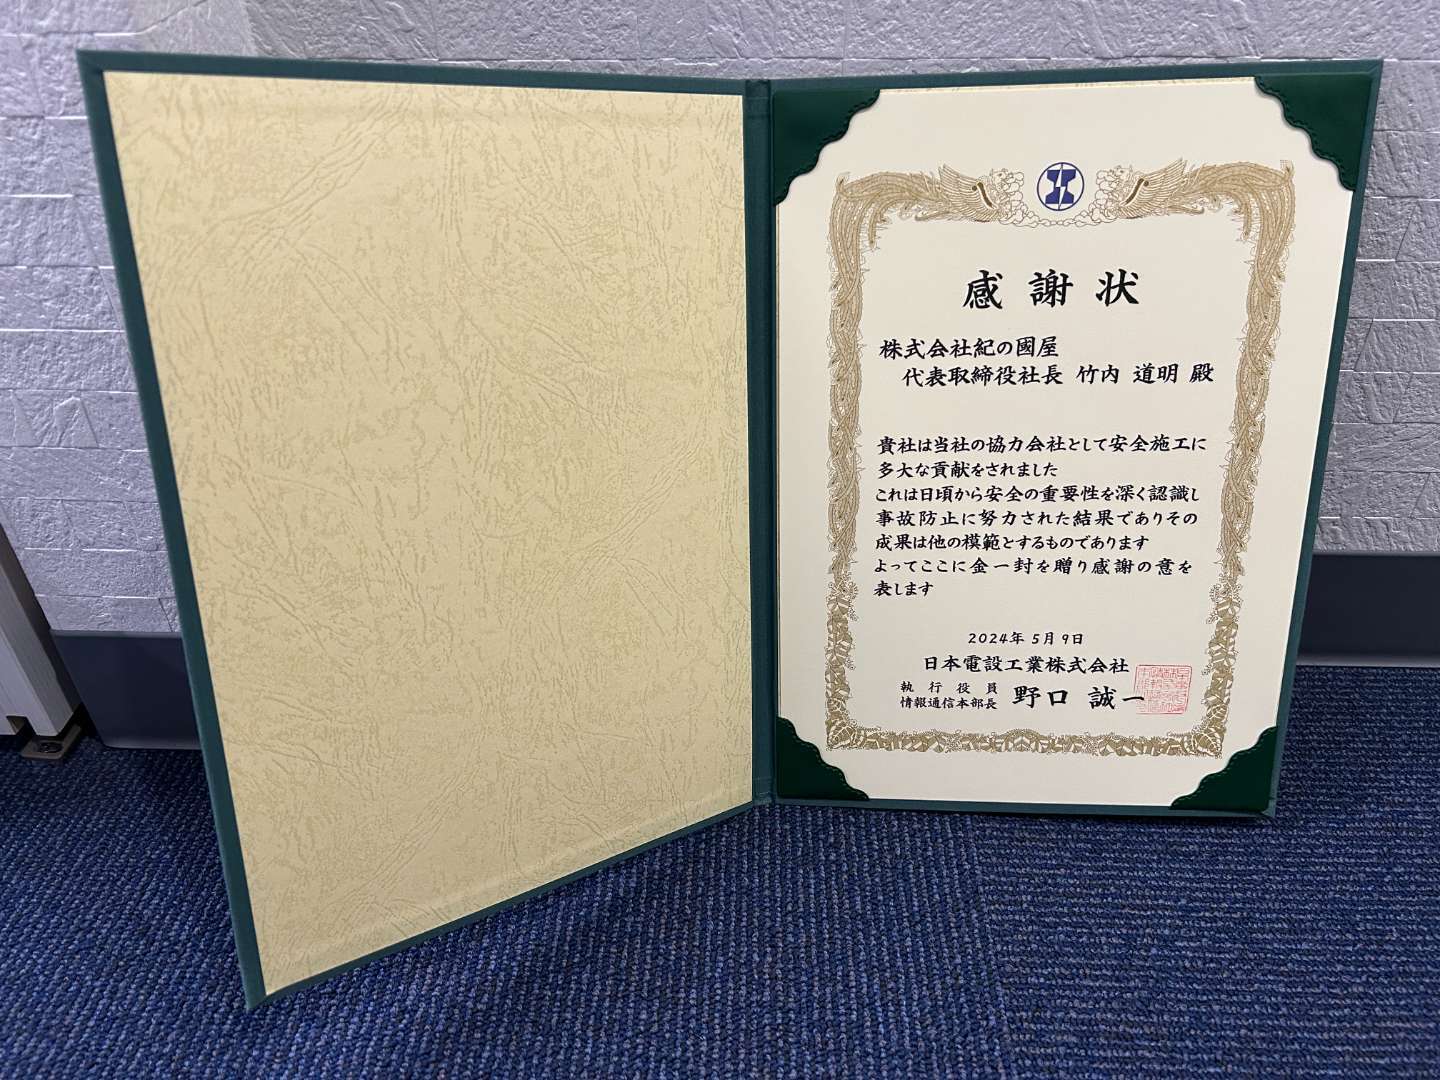 感謝状
株式会社紀の國屋
代表取締役社長 竹内 道明 殿
貴社は当社の協力会社として安全施工に
多大な貢献をされました
これは日頃から安全の重要性を深く認識し
事故防止に努力された結果でありその
成果は他の模範とするものであります
よってここに金一封を贈り感謝の意を
表します
2024年5月9日
日本電設工業株式会社
執行役員
情報通信本部長 野口 誠一